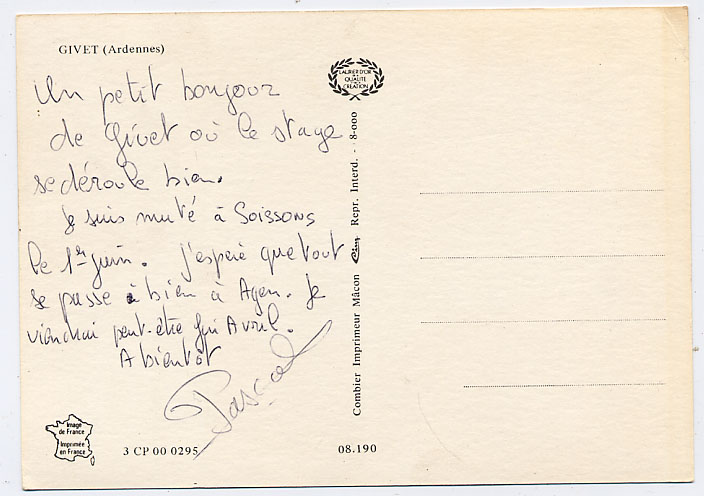 GIVET (Ardennes)
Un petit bonjour
de Givet où le stage
se déroule bien.
Je suis muté à Soissons
le 1er juin. J'espère que tout
se passe bien à Agen. Je
viendrai peut-être fin Avril.
A bientôt
Pascal
LAURIER D'OR
DE LA
QUALITÉ
CRÉATION
Combier Imprimeur Mâcon Cim Repr. Interd. - 8-000
Image
de France
Imprimée
en France
3 CP 00 0295
08.190